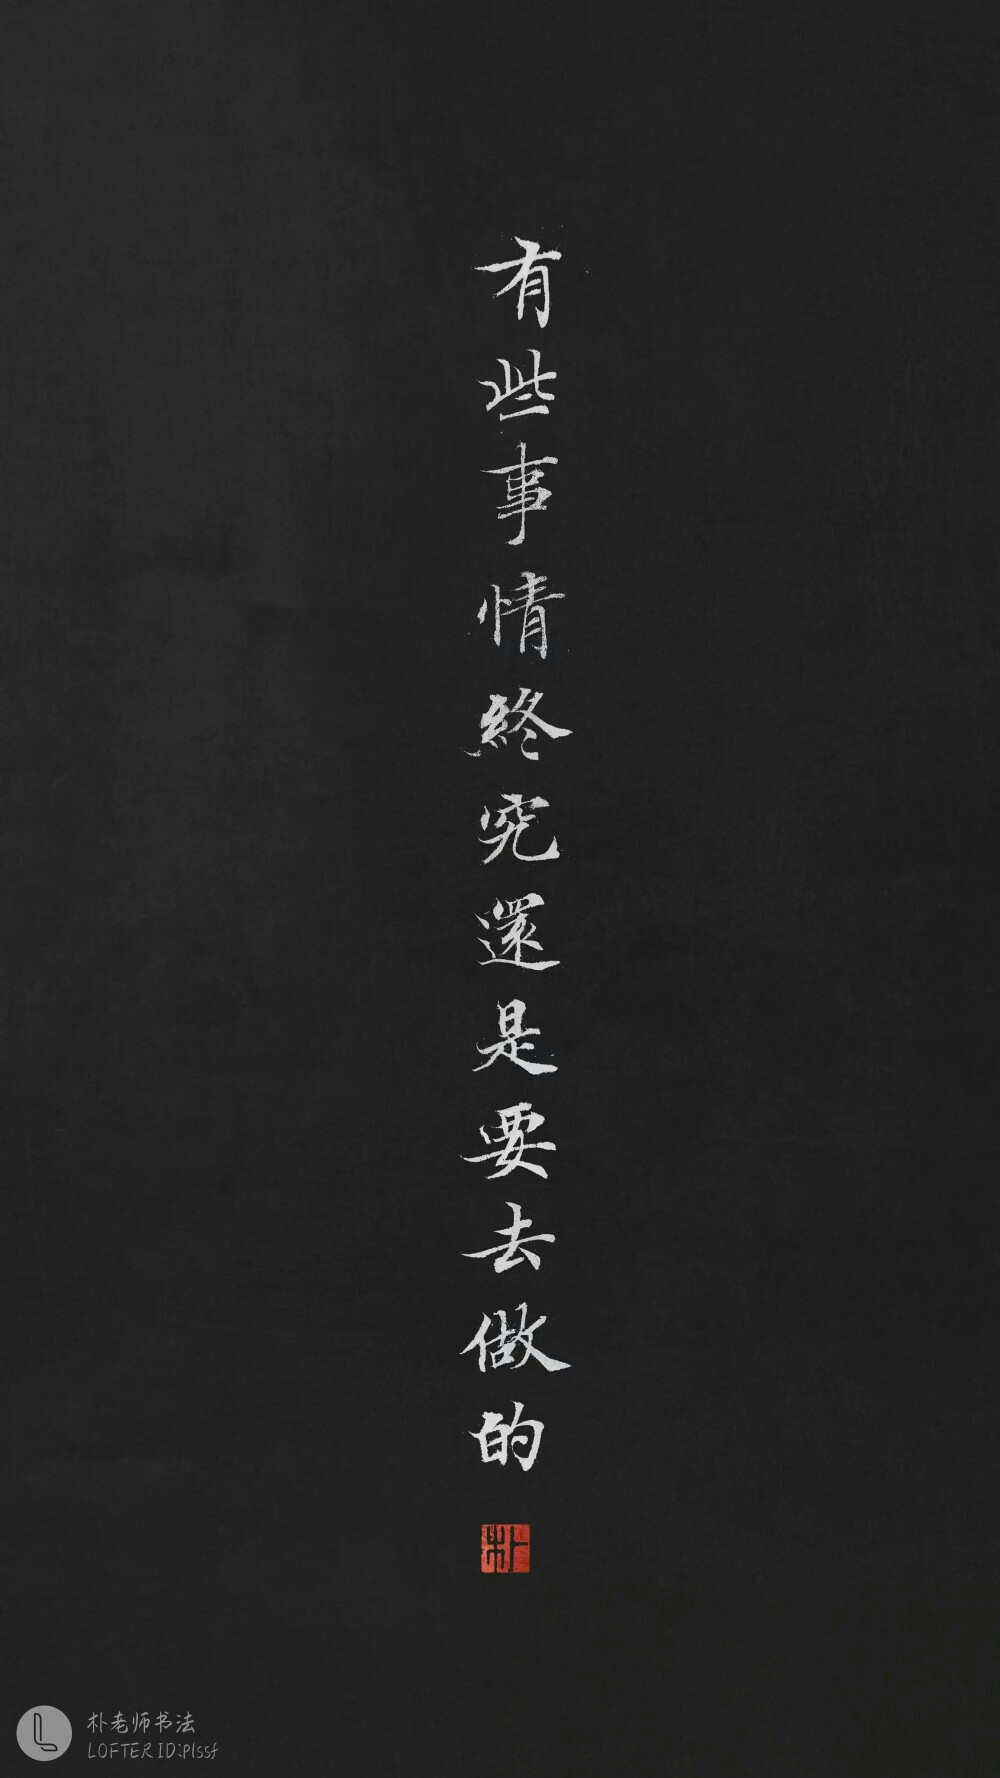 有些事情終究還是要去做的
朴
朴老师书法
LOFTER ID:plssf